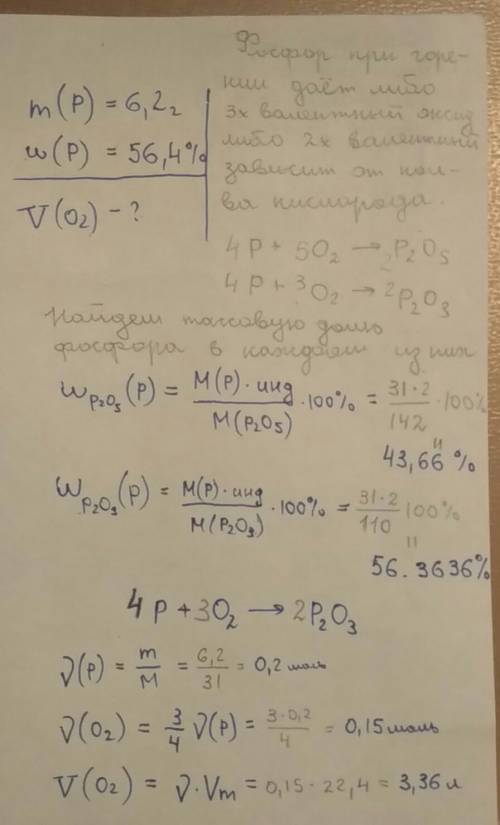 m(P) = 6,2г
w(P) = 56,4%
V(O₂) - ?
Фосфор при горе-
нии даёт либо
3х валентный оксид
либо 2х валентный
зависит от кол-
ва кислорода.
4P + 5O₂ → 2P₂O₅
4P + 3O₂ → 2P₂O₃
Найдем массовую долю
фосфора в каждом из них
w P₂O₅ (P) = M(P) · инд / M(P₂O₅) · 100% = 31·2 / 142 · 100%
"
43,66 %
w P₂O₃ (P) = M(P) · инд / M(P₂O₃) · 100% = 31·2 / 110 100%
"
56.3636%
4P + 3O₂ → 2P₂O₃
ν(P) = m / M = 6,2 / 31 = 0,2 моль
ν(O₂) = 3/4 ν(P) = 3·0,2 / 4 = 0,15 моль
V(O₂) = ν·Vm = 0,15·22,4 = 3,36 л